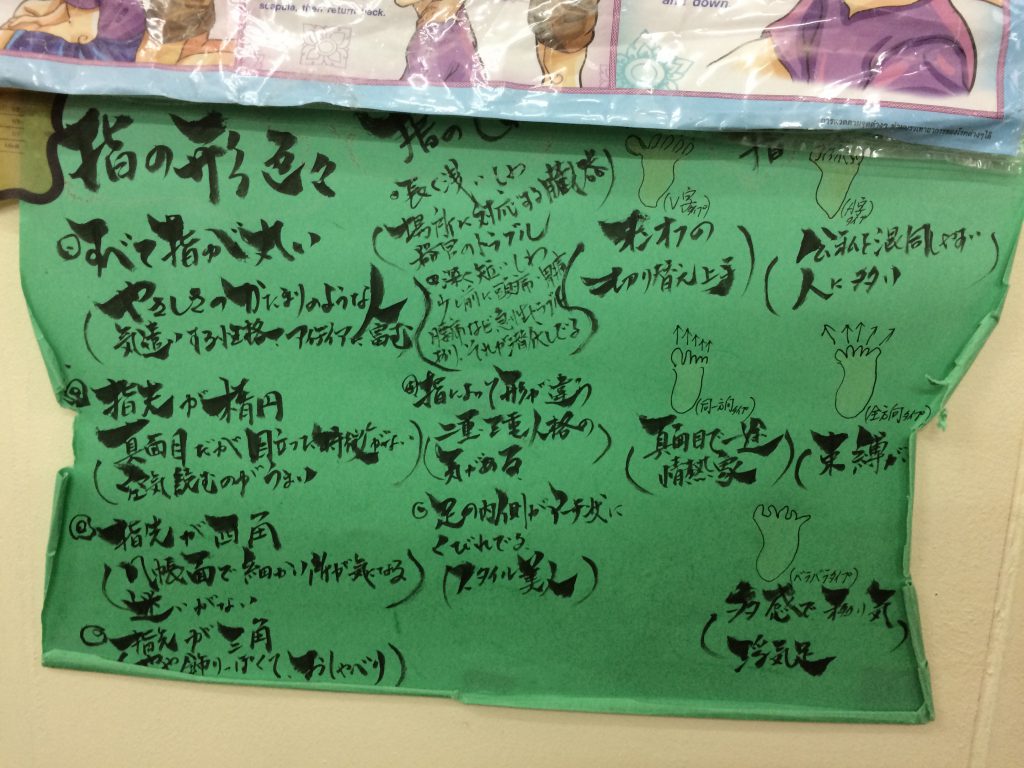 scapula, then return back.
and down.
指の形色々
すべて指が丸い
(やさしさのかたまりのような人
気遣いする性格 アイディアに富む)
指先が楕円
(真面目だが目立つ
空気読むのがうまい)
指先が四角
(几帳面で細かい所が気になる)
迷いがない
指先が三角
(やや飽りっぽくて、おしゃべり)
指の
長く浅いしわ
(場所に対応する臓器
器官のトラブル)
深く短いしわ
(少し前に頭痛、胃痛
腰痛など急性トラブル
があり、それが潜伏してる)
指によって形が違う
(二重三重人格の
気がある)
足の内側がアーチ状に
くびれてる
(スタイル美人)
(V字タイプ)
(オンオフの
切り替え上手)
指
(A字タイプ)
(公私を混同しやすい
人に多い)
(同一方向タイプ)
(真面目で一途
情熱家)
(全方向タイプ)
(束縛
(バラバラタイプ)
(多感で移り気
浮気足)